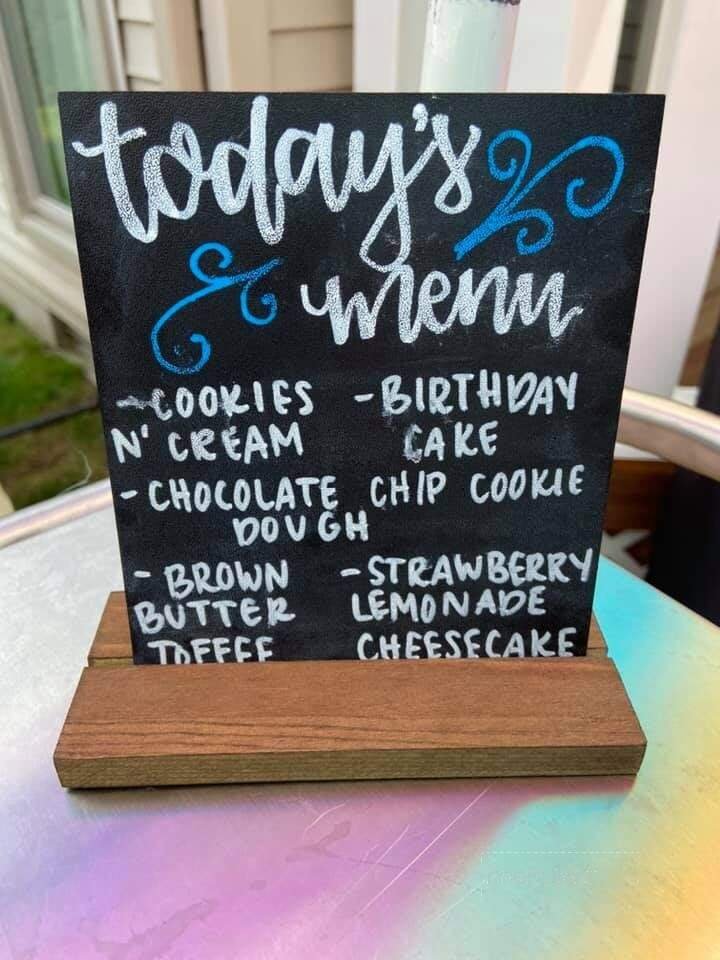 today's
menu
-COOKIES -BIRTHDAY
N' CREAM CAKE
-CHOCOLATE CHIP COOKIE
DOUGH
-BROWN -STRAWBERRY
BUTTER LEMONADE
TOFFEE CHEESECAKE